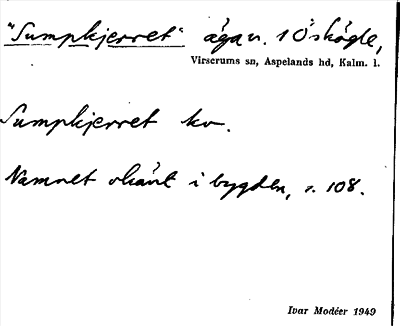 "Sumpkjerret" ägan. 1 Öskögle,
Virserums sn, Aspelands hd, Kalm. l.
Sumpkjerret kv.
Namnet okänt i bygden, s. 108.
Ivar Modéer 1949